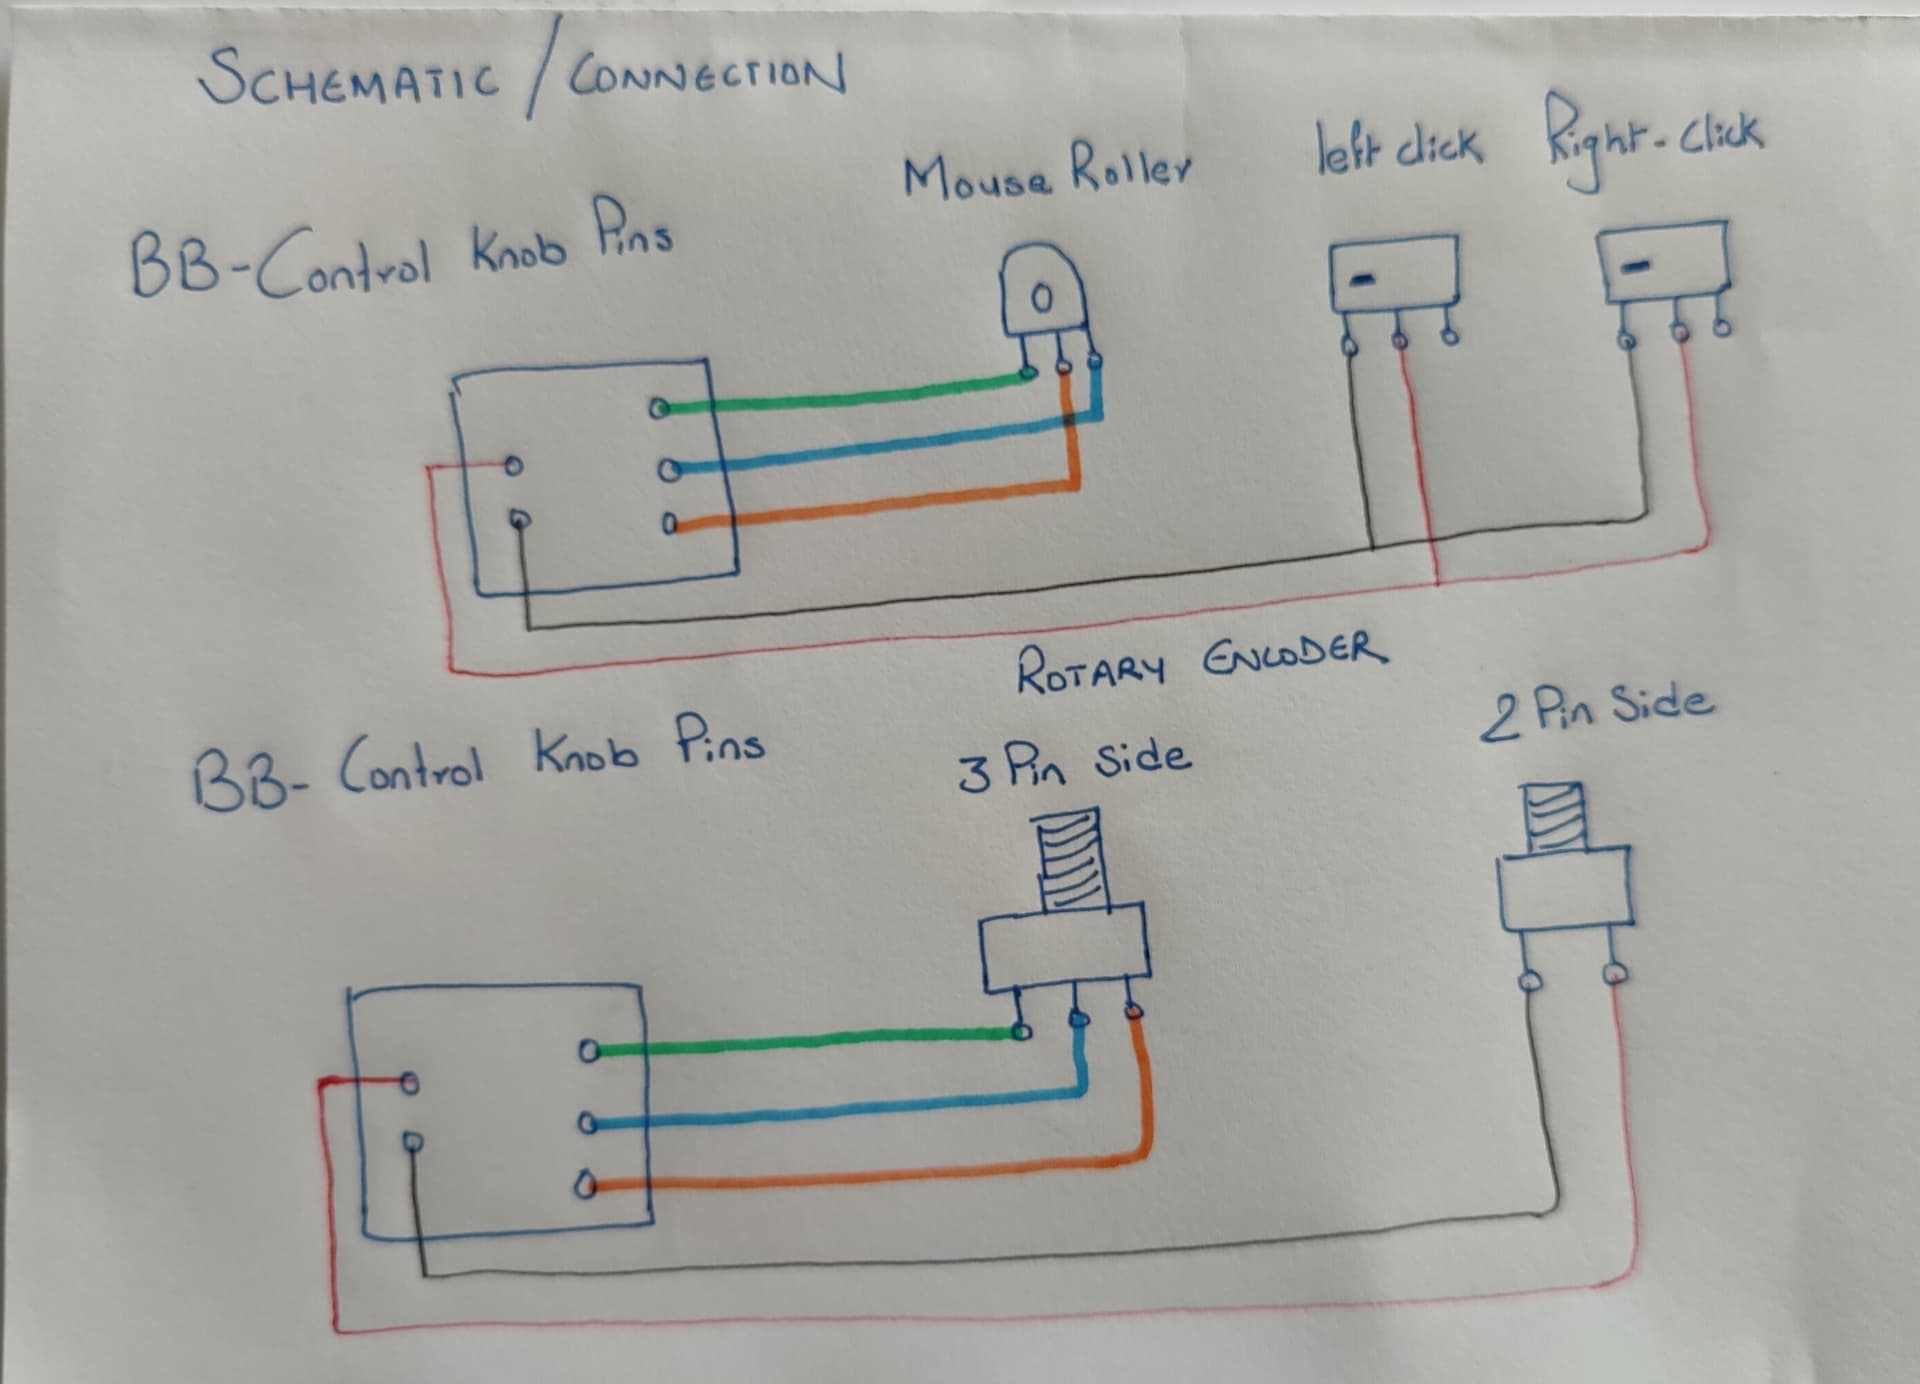 SCHEMATIC / CONNECTION
Mouse Roller
left click
Right-Click
BB-Control Knob Pins
ROTARY ENCODER
BB- Control Knob Pins
3 Pin Side
2 Pin Side